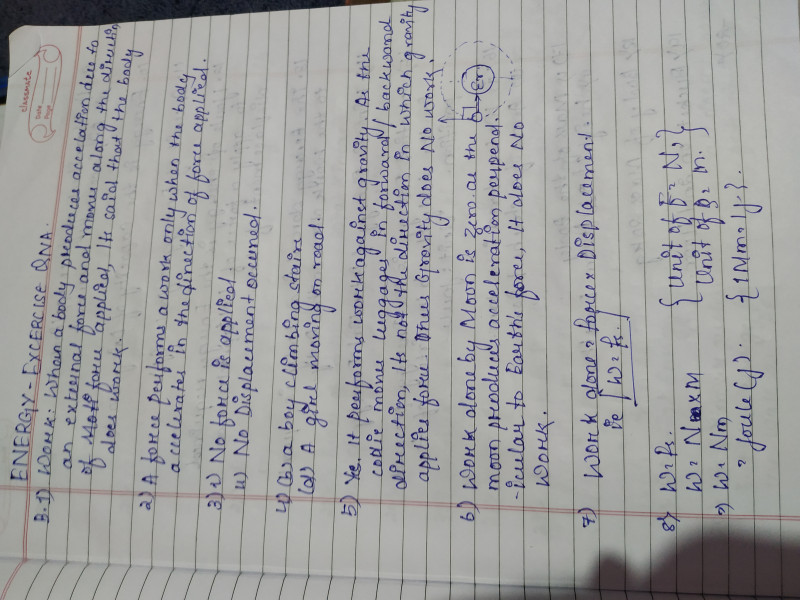 classmate
Date
Page
ENERGY - EXCERCISE QNA.
B.1) Work: When a body produces accelation due to
an external force and move along the direction
of force applied, It said that the body
does work.
2) A force performs a work only when the body
accelerates in the direction of force applied.
3) i) No force is applied.
ii) No Displacement occured.
4) (b) a boy climbing stairs
(d) A girl moving on road.
5) Yes. It performs work against gravity. As the
coolie move luggages in forward / backward
direction, Its not the direction in which gravity
applies force. Thus Gravity does No work.
6) Work done by Moon is zero as the
moon produces acceleration perpend.
-icular to Earth's force, It does No
Work.
7) Work done = force × Displacement.
ie W = Fs.
8) W = Fs. { Unit of F = N, }
W = N × M { Unit of S = m. }
=) W = Nm
= Joule (J). { 1Nm = 1J }.